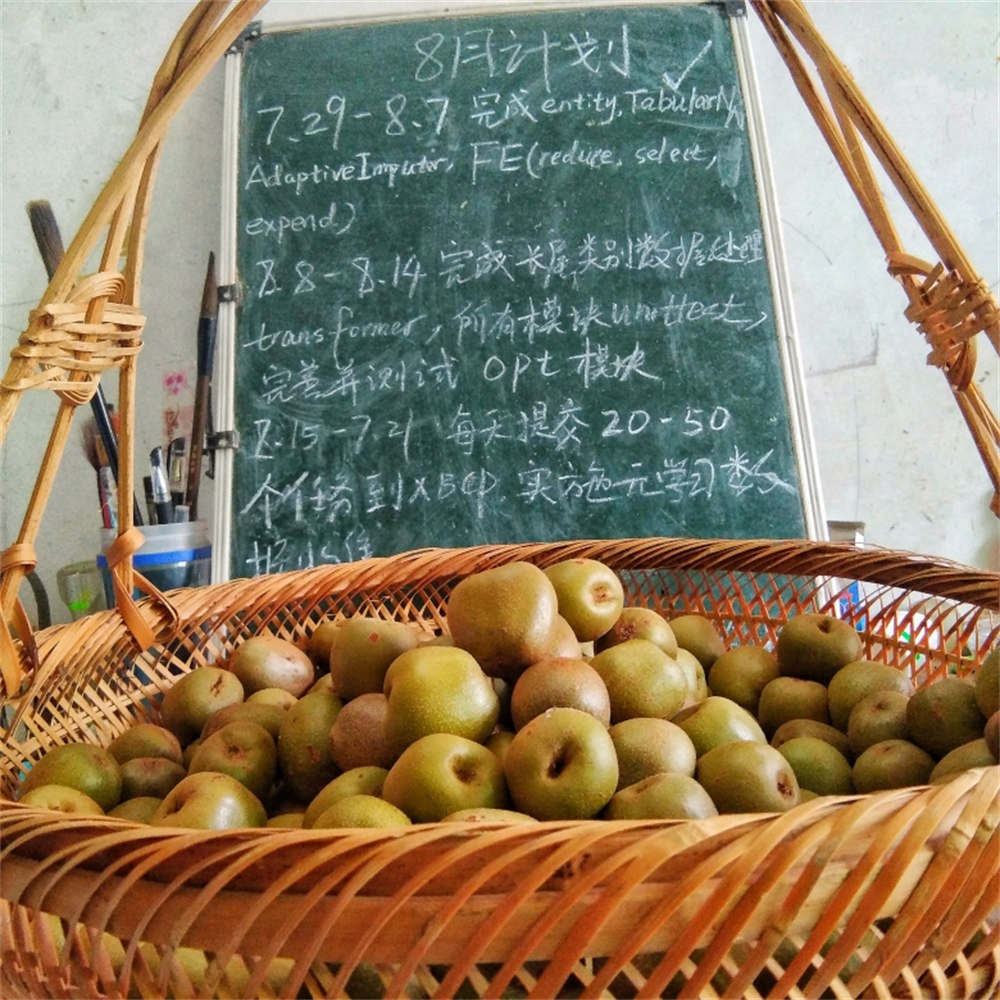 8月计划 ✓
7.29-8.7 完成entity,TabularNN
AdaptiveImputer, FE(reduce, select,
expend)
8.8-8.14 完成 类别数据处理
transformer, 所有模块unittest,
完善并测试 opt 模块
8.15-7.21 每天提交 20-50
个任务到 实施元学习